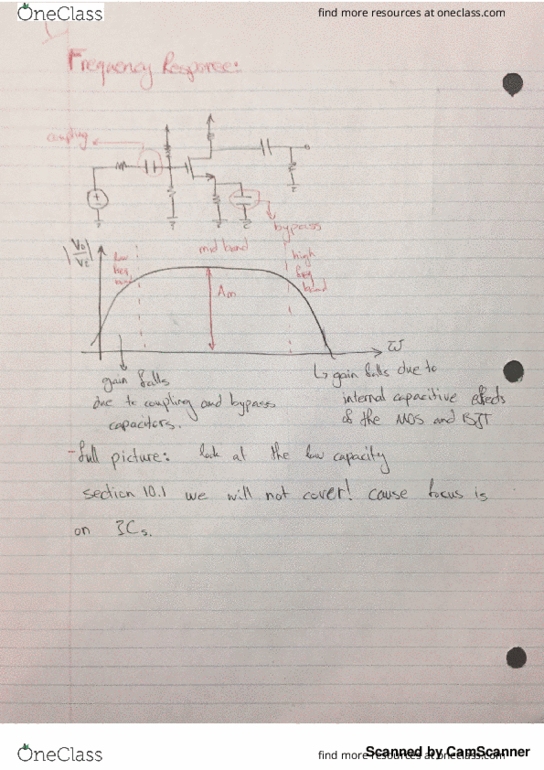 OneClass
find more resources at oneclass.com
Frequency Response:
coupling
bypass
|Vo/Vi|
low freq band
mid band
high freq band
Am
ω
gain falls
due to coupling and bypass
capacitors.
↳ gain falls due to
internal capacitive effects
of the MOS and BJT
- full picture: look at the low capacity
section 10.1 we will not cover! cause focus is
on ICs.
OneClass
find more resources at oneclass.com
Scanned by CamScanner